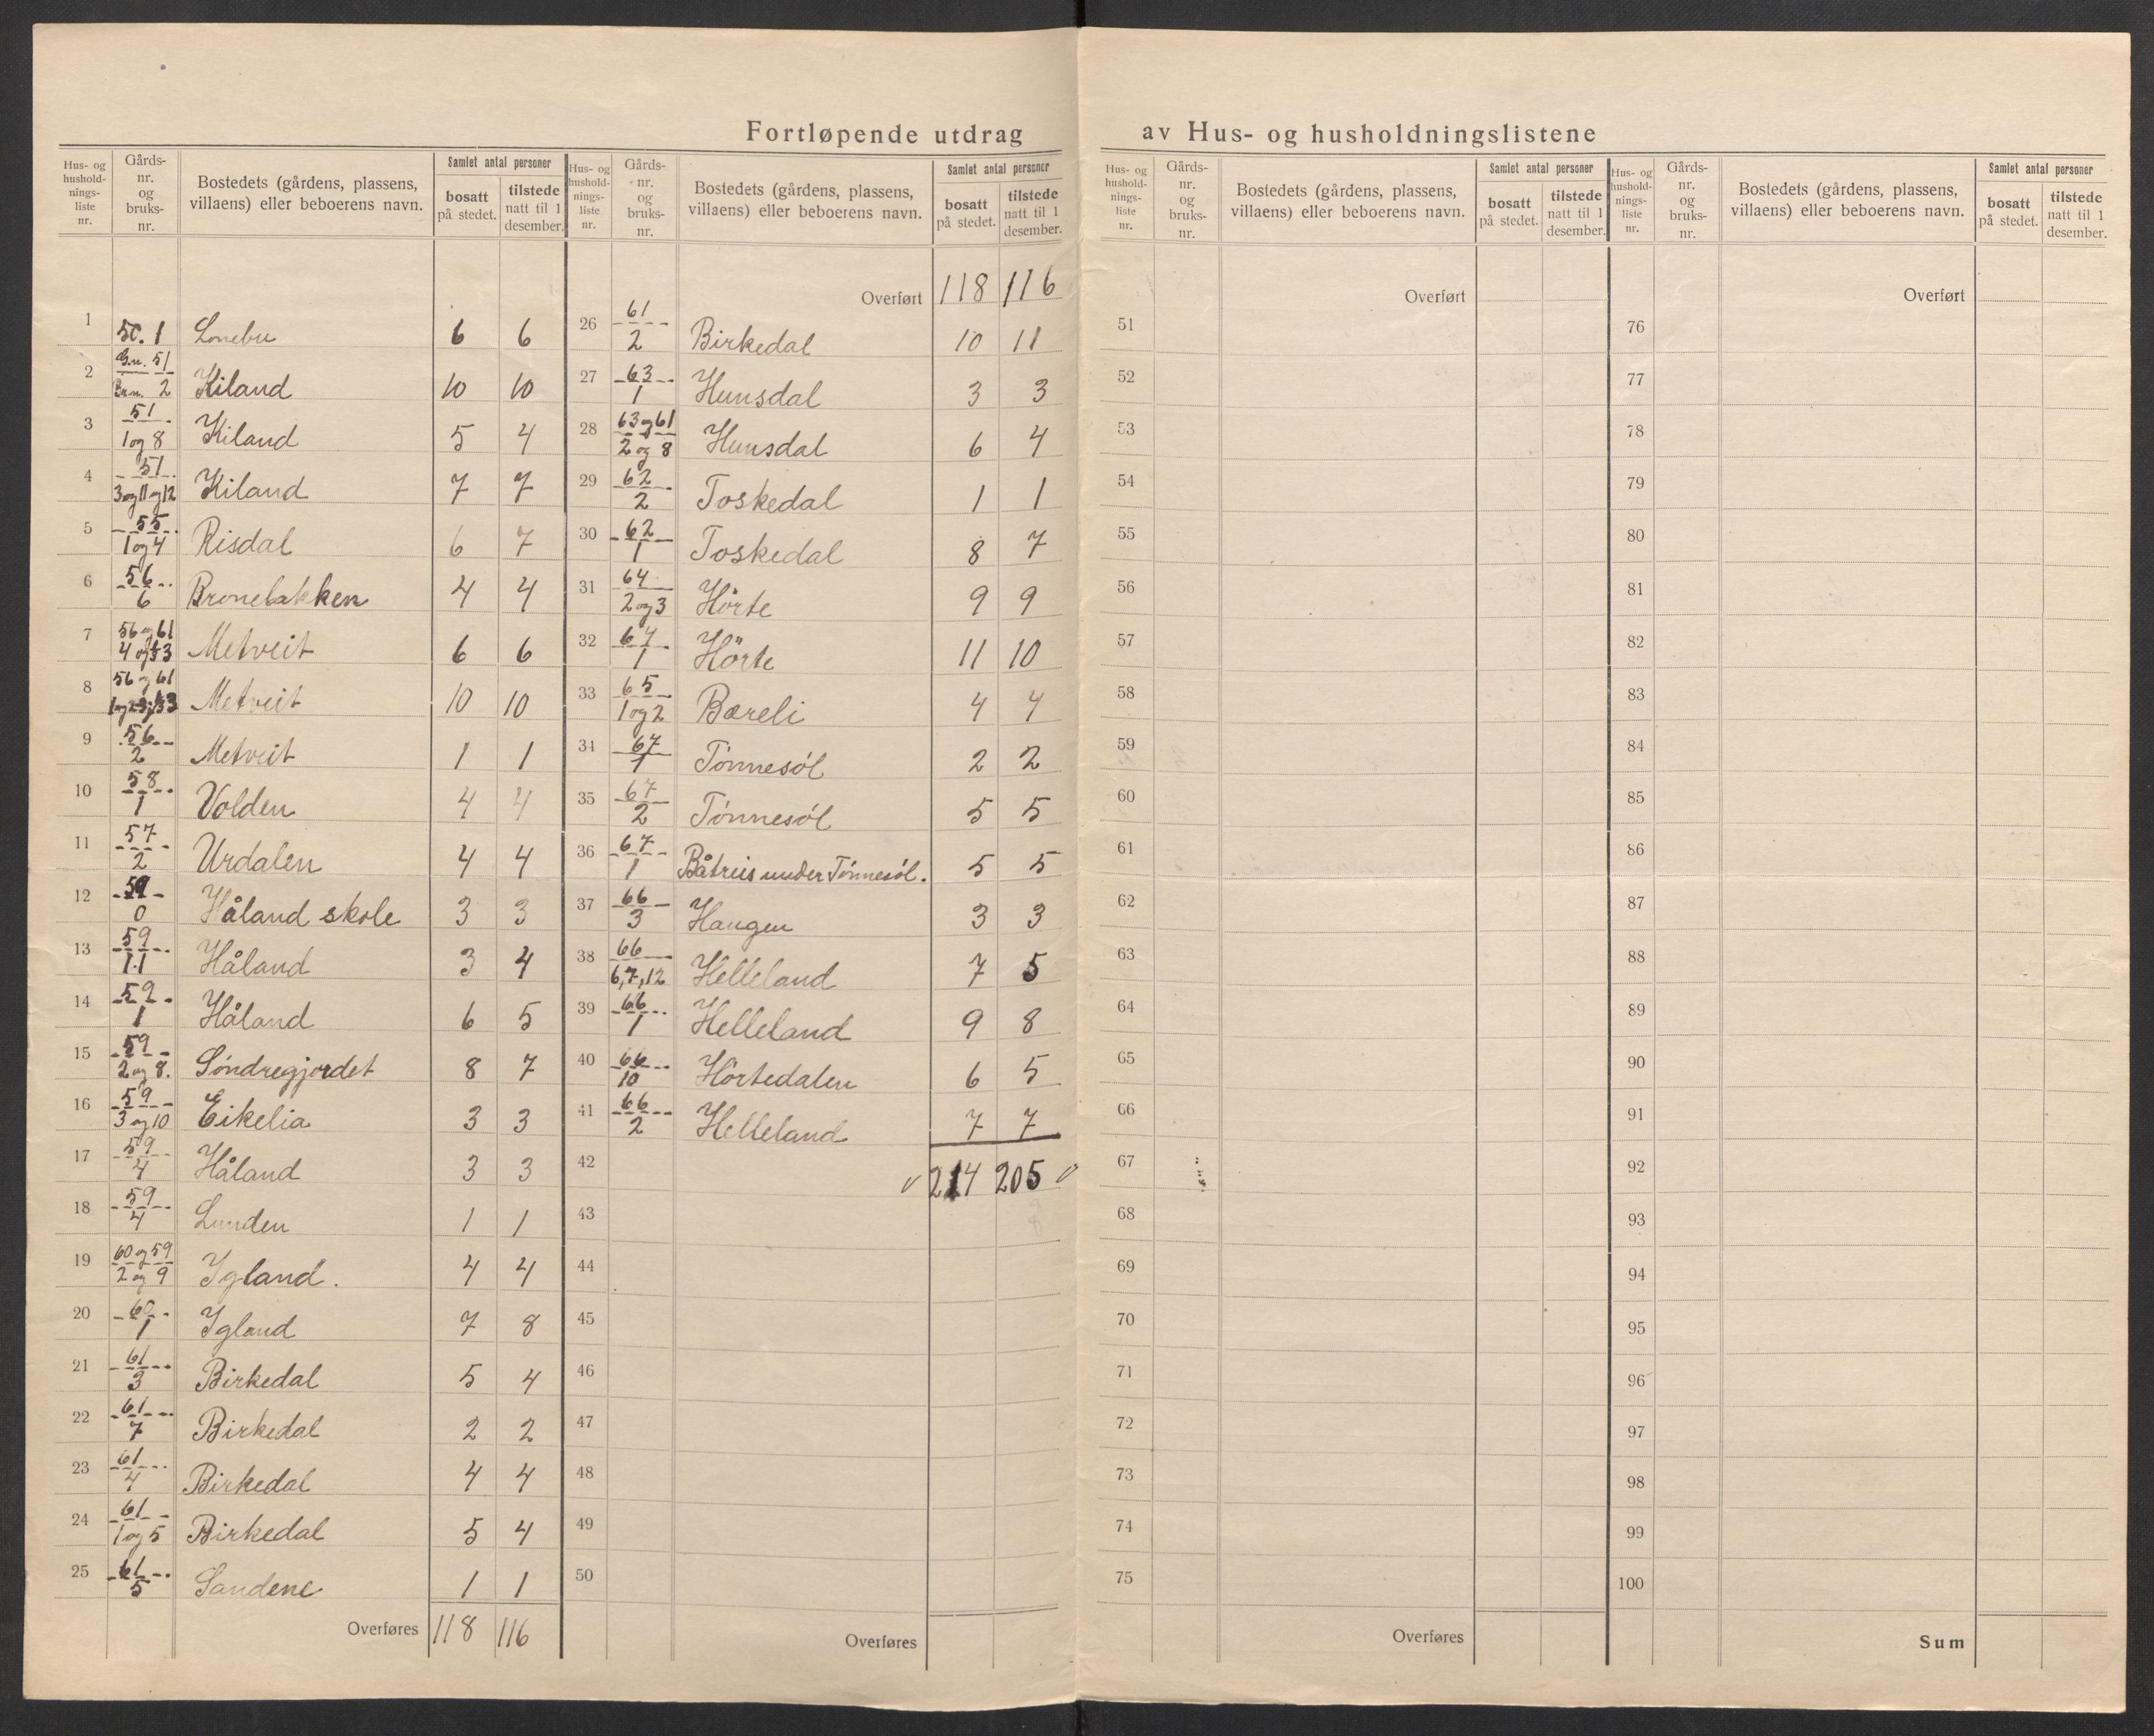 Fortløpende utdrag av Hus- og husholdningslistene
Hus- og hushold-nings-liste nr. | Gårds-nr. og bruks-nr. | Bostedets (gårdens, plassens, villaens) eller beboerens navn. | Samlet antal personer | bosatt på stedet. | tilstede natt til 1 desember.
1 | 50. 1 | Lonebu | 6 | 6
2 | G.n. 51 / Brn. 2 | Kiland | 10 | 10
3 | 51 / 1 og 8 | Kiland | 5 | 4
4 | 51 / 3 og 11 og 12 | Kiland | 7 | 7
5 | 55 / 1 og 4 | Risdal | 6 | 7
6 | 56 / 6 | Bronebakken | 4 | 4
7 | 56 og 61 / 4 og 13 | Metveit | 6 | 6
8 | 56 og 61 | Metveit | 10 | 10
9 | 56 / 2 | Metveit | 1 | 1
10 | 58 / 1 | Volden | 4 | 4
11 | 57 / 2 | Urdalen | 4 | 4
12 | 59 / 0 | Håland skole | 3 | 3
13 | 59 / 11 | Håland | 3 | 4
14 | 59 / 1 | Håland | 6 | 5
15 | 59 / 2 og 8. | Søndregjordet | 8 | 7
16 | 59 / 3 og 10 | Eikelia | 3 | 3
17 | 59 / 4 | Håland | 3 | 3
18 | 59 / 4 | Lunden | 1 | 1
19 | 60 og 59 / 2 og 9 | Igland. | 4 | 4
20 | 60 / 1 | Igland | 7 | 8
21 | 61 / 3 | Birkedal | 5 | 4
22 | 61 / 7 | Birkedal | 2 | 2
23 | 61 / 4 | Birkedal | 4 | 4
24 | 61 / 1 og 5 | Birkedal | 5 | 4
25 | 61 / 5 | Sandene | 1 | 1
Overføres | 118 | 116
Hus- og hushold-nings-liste nr. | Gårds-nr. og bruks-nr. | Bostedets (gårdens, plassens, villaens) eller beboerens navn. | Samlet antal personer | bosatt på stedet. | tilstede natt til 1 desember.
Overført | 118 | 116
26 | 61 / 2 | Birkedal | 10 | 11
27 | 63 / 1 | Hunsdal | 3 | 3
28 | 63 og 61 / 2 og 8 | Hunsdal | 6 | 4
29 | 62 / 2 | Toskedal | 1 | 1
30 | 62 / 1 | Toskedal | 8 | 7
31 | 64 / 2 og 3 | Hörte | 9 | 9
32 | 64 / 1 | Hörte | 11 | 10
33 | 65 / 1 og 2 | Bæreli | 4 | 4
34 | 67 / 1 | Tønnesøl | 2 | 2
35 | 67 / 2 | Tønnesøl | 5 | 5
36 | 67 / 1 | Båtreis under Tønnesøl. | 5 | 5
37 | 66 / 3 | Haugen | 3 | 3
38 | 66 / 6,7,12 | Helleland | 7 | 5
39 | 66 / 1 | Helleland | 9 | 8
40 | 66 / 10 | Hörtedalen | 6 | 5
41 | 66 / 2 | Helleland | 7 | 7
42 | 214 | 205
43
44
45
46
47
48
49
50
Overføres
Hus- og hushold-nings-liste nr. | Gårds-nr. og bruks-nr. | Bostedets (gårdens, plassens, villaens) eller beboerens navn. | Samlet antal personer | bosatt på stedet. | tilstede natt til 1 desember.
Overført
51
52
53
54
55
56
57
58
59
60
61
62
63
64
65
66
67
68
69
70
71
72
73
74
75
Overføres
Hus- og hushold-nings-liste nr. | Gårds-nr. og bruks-nr. | Bostedets (gårdens, plassens, villaens) eller beboerens navn. | Samlet antal personer | bosatt på stedet. | tilstede natt til 1 desember.
Overført
76
77
78
79
80
81
82
83
84
85
86
87
88
89
90
91
92
93
94
95
96
97
98
99
100
Sum